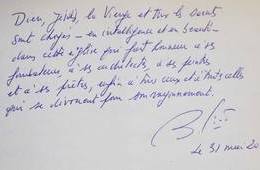 Dieu, Jésus, la Vierge et tous les Saints
sont choyés – en intelligence et en beauté –
dans cette église qui fait honneur à ses
fondateurs, à ses architectes, à ses
et à ses prêtres, enfin à tous ceux et à toutes celles
qui se dévouent pour son rayonnement.
le 31 mai 20